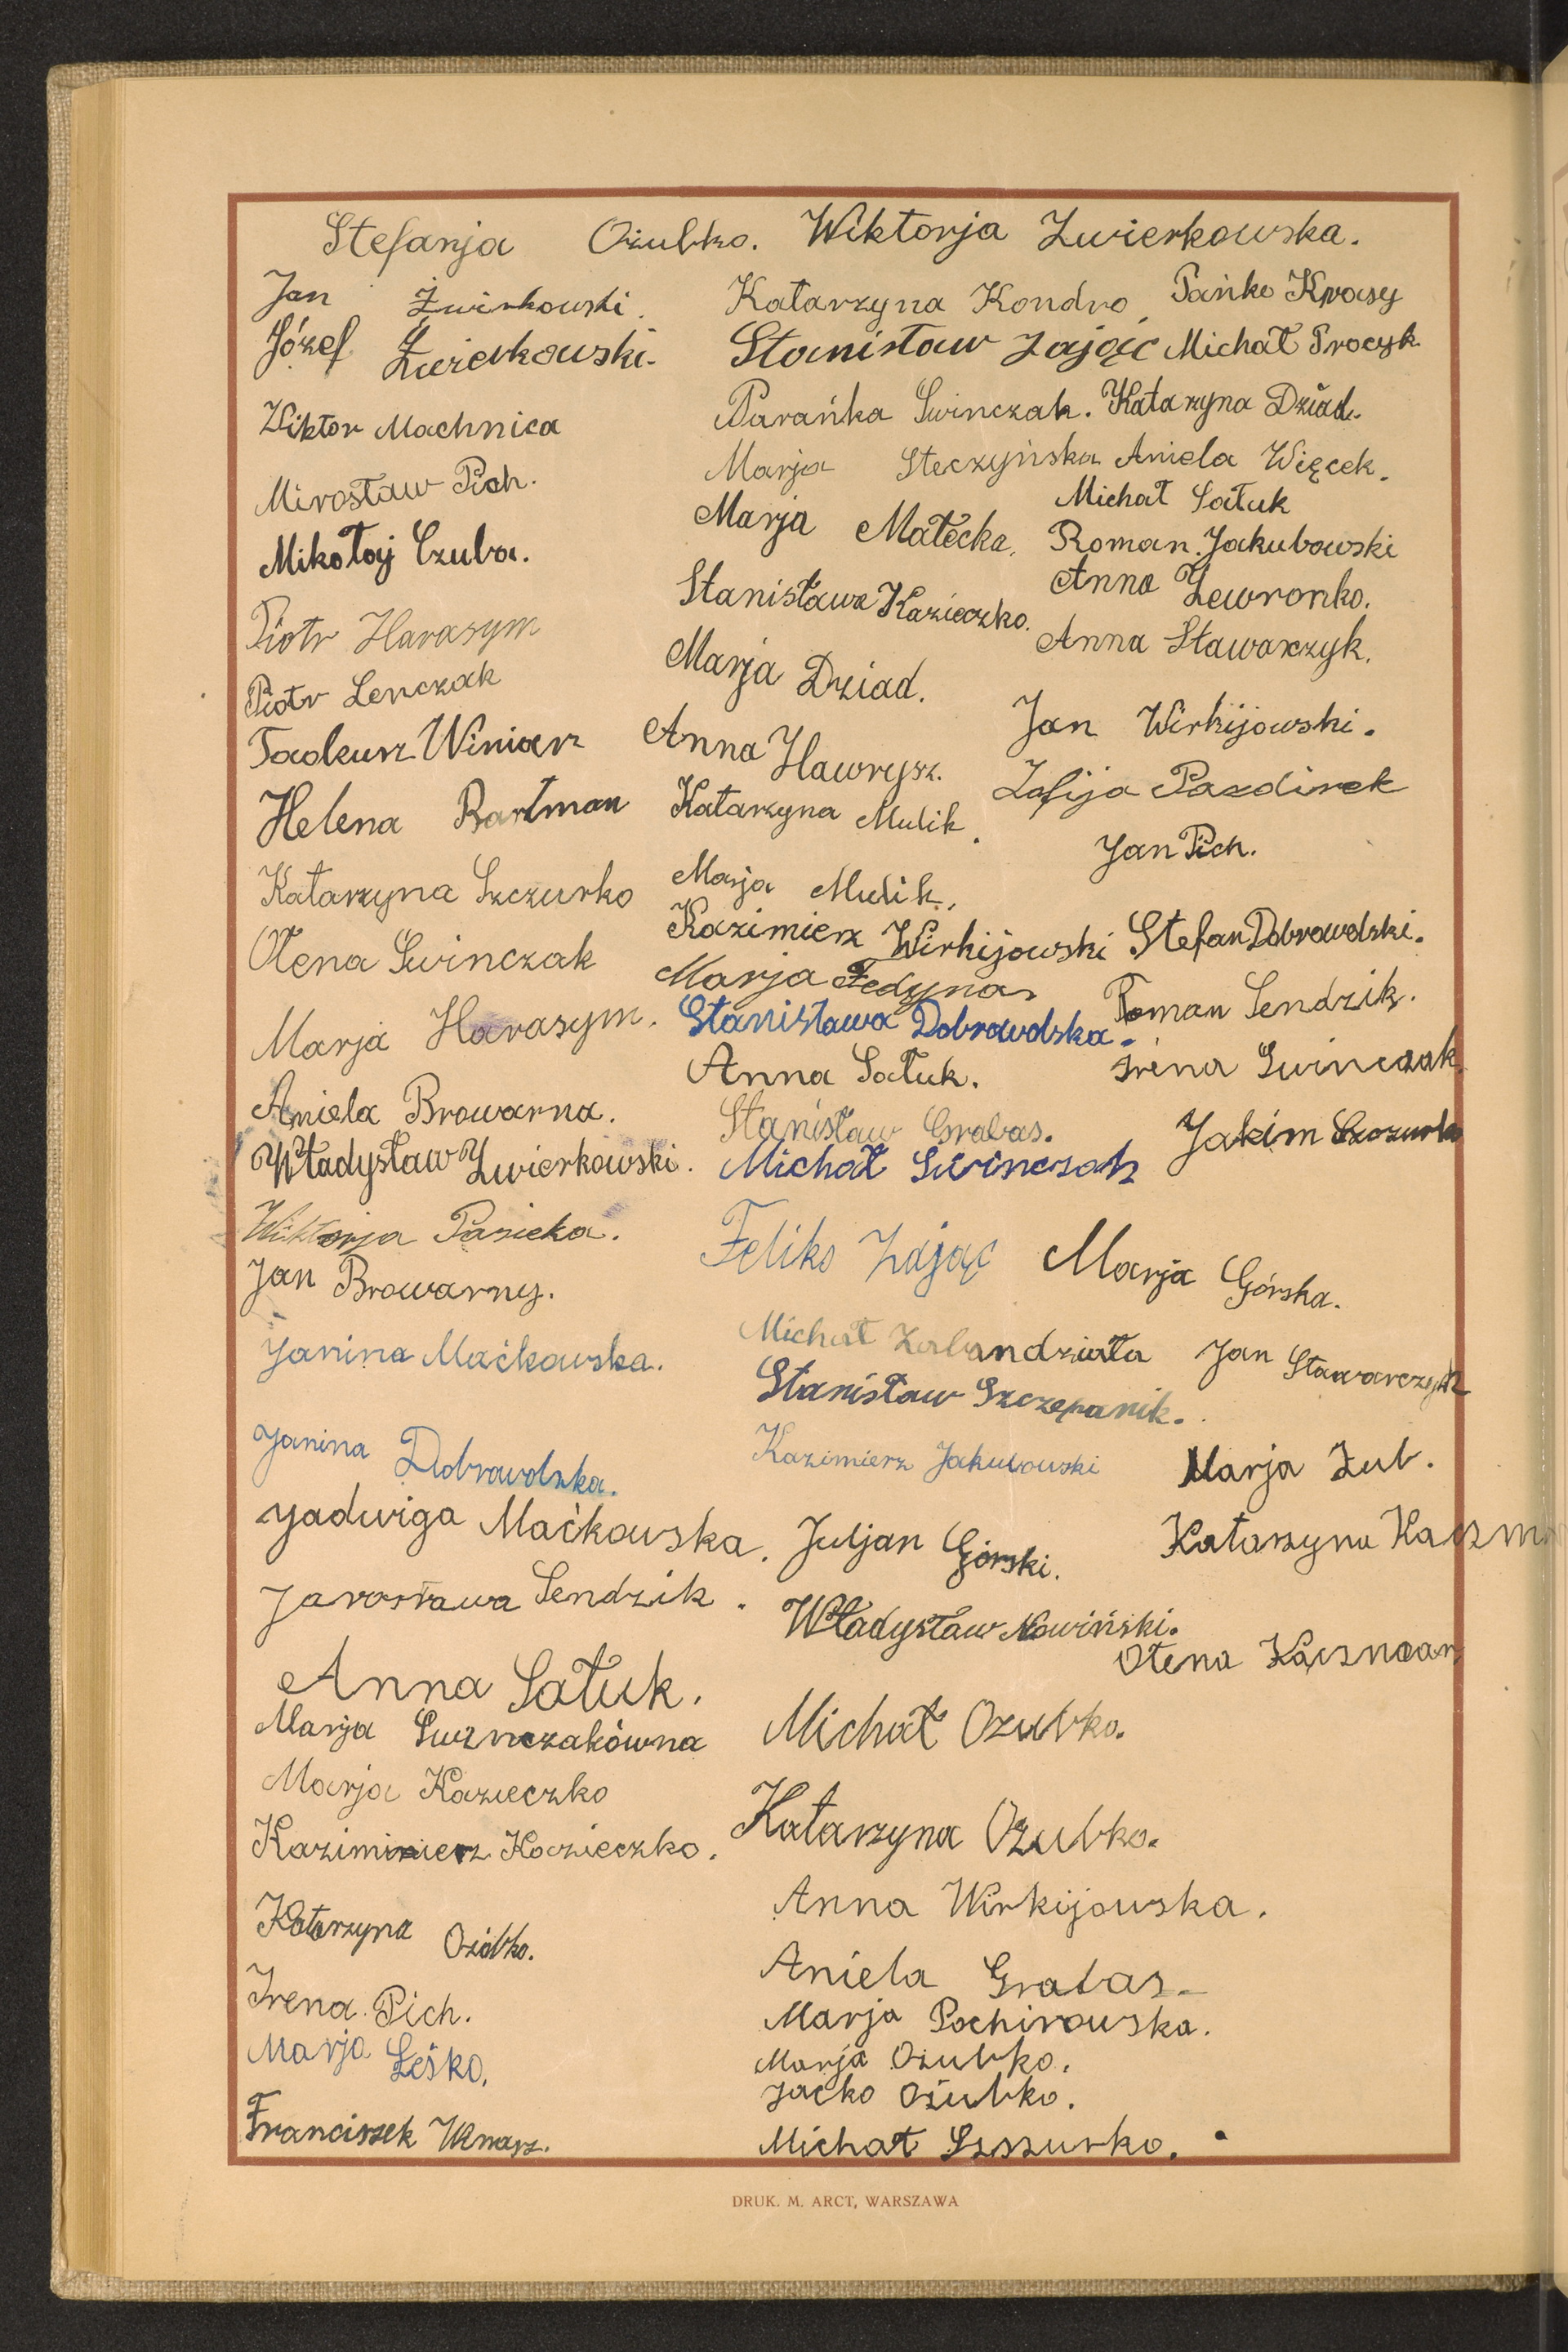 Stefanja Ożubko. Wiktorja Zwierkowska.
Jan Żwirkowski.
Józef Zwierkowski.
Wiktor Machnica
Mirosław Pich.
Mikołaj Czuba.
Piotr Harasym
Piotr Lenczak
Tadeusz Winiarz
Helena Bartman
Katarzyna Szczurko
Ołena Swinczak
Marja Harasym.
Aniela Browarna.
Władysław Zwierkowski.
Wiktorja Pasieka.
Jan Browarny.
Janina Maćkowska.
Janina Dobrowolska.
Jadwiga Maćkowska.
Jarosława Sendzik.
Anna Sałuk.
Marja Swinczakówna
Marja Kazieczko
Kazimierz Kazieczko.
Katarzyna Ożóbko.
Irena Pich.
Marja Leśko.
Franciszek
Katarzyna Kondro
Stanisław Zając
Parańka Swinczak.
Marja Steczyńska
Marja Małecka.
Stanisława Kazieczko.
Marja Dziad.
Anna Hawrysz.
Katarzyna Mulik.
Marja Mulik.
Kazimierz Wirkijowski
Marja Fedyna
Stanisława Dobrowolska.
Anna Sałuk.
Stanisław Grabas.
Michał Swinczak
Feliks Zając
Michał Zabandziała
Stanisław Szczepanik.
Kazimierz Jakubowski
Juljan Górski.
Władysław Nowiński.
Michał Ozubko.
Katarzyna Ozubko.
Anna Wirkijowska.
Aniela Grabas.
Marja Pochirowska.
Marja Ożubko.
Jacko Ożubko.
Michał Szszurko.
Pańko Krasy
Michał Procyk
Katarzyna Dziad.
Aniela Więcek.
Michał Sałuk
Roman Jakubowski
Anna Zewronko.
Anna Stawarczyk.
Jan Wirkijowski.
Zofija Pazdirek
Jan Pich.
Stefan Dobrowolski.
Roman Sendzik.
Irena Swinczak
Jakim Szczurko
Marja Górska.
Jan Stawarczyk
Marja Zub.
Katarzyna
Ołena
DRUK. M. ARCT, WARSZAWA